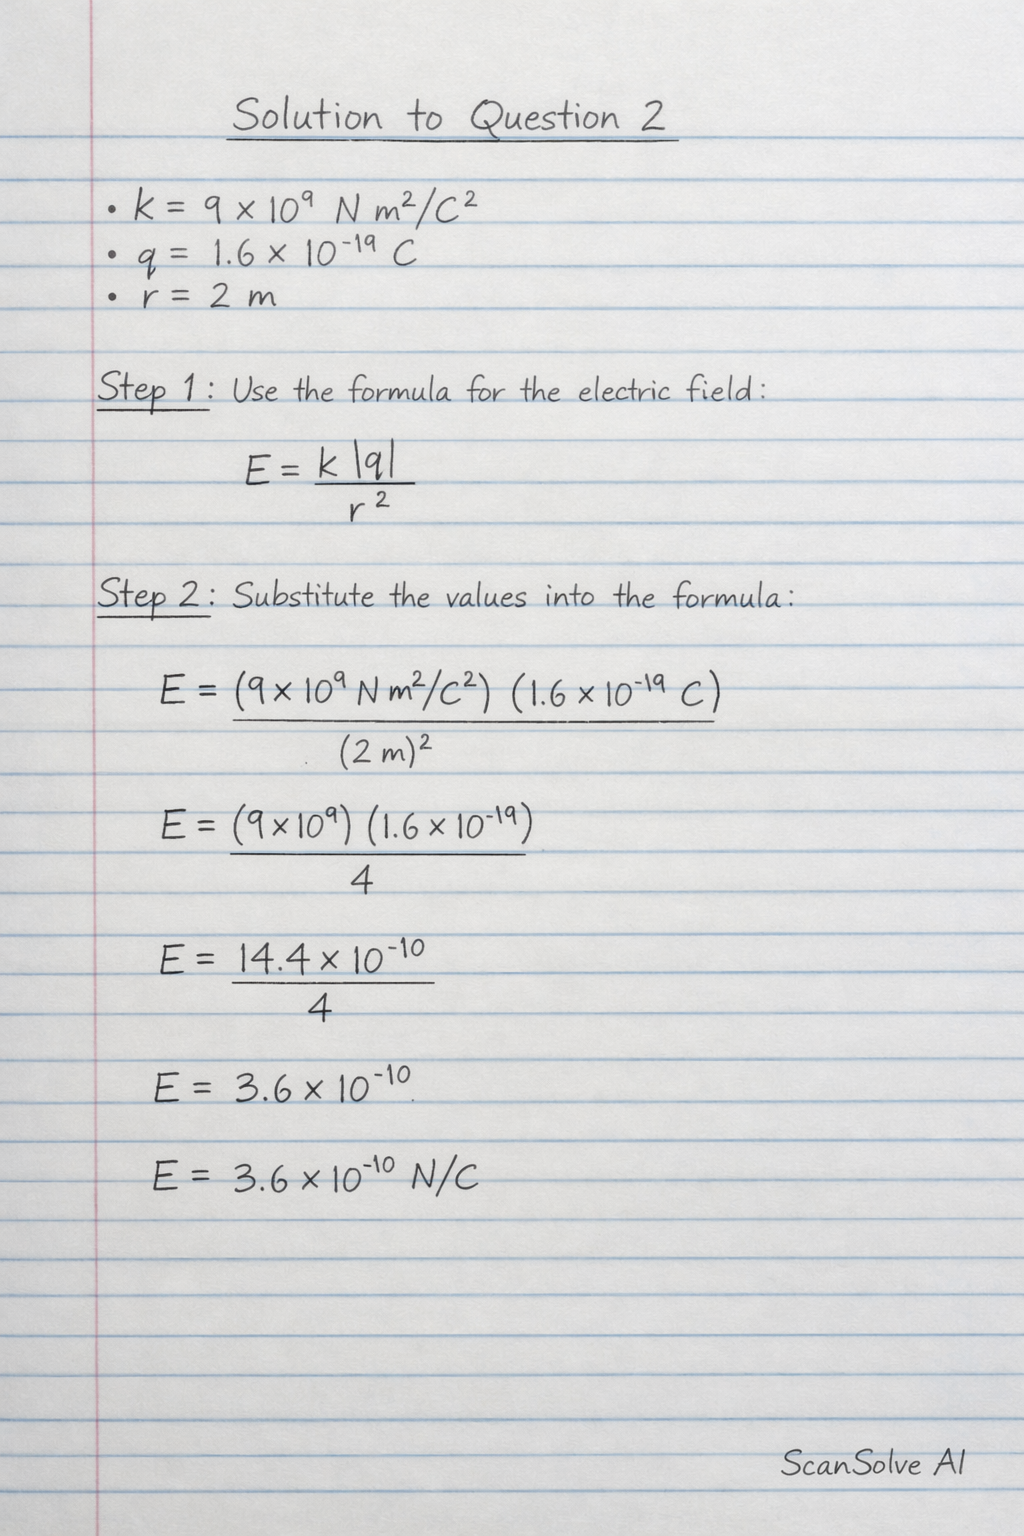 Solution to Question 2
• k = 9 × 10⁹ N m²/C²
• q = 1.6 × 10⁻¹⁹ C
• r = 2 m
Step 1: Use the formula for the electric field:
E = k |q|
r²
Step 2: Substitute the values into the formula:
E = (9 × 10⁹ N m²/C²) (1.6 × 10⁻¹⁹ C)
(2 m)²
E = (9 × 10⁹) (1.6 × 10⁻¹⁹)
4
E = 14.4 × 10⁻¹⁰
4
E = 3.6 × 10⁻¹⁰
E = 3.6 × 10⁻¹⁰ N/C
ScanSolve AI